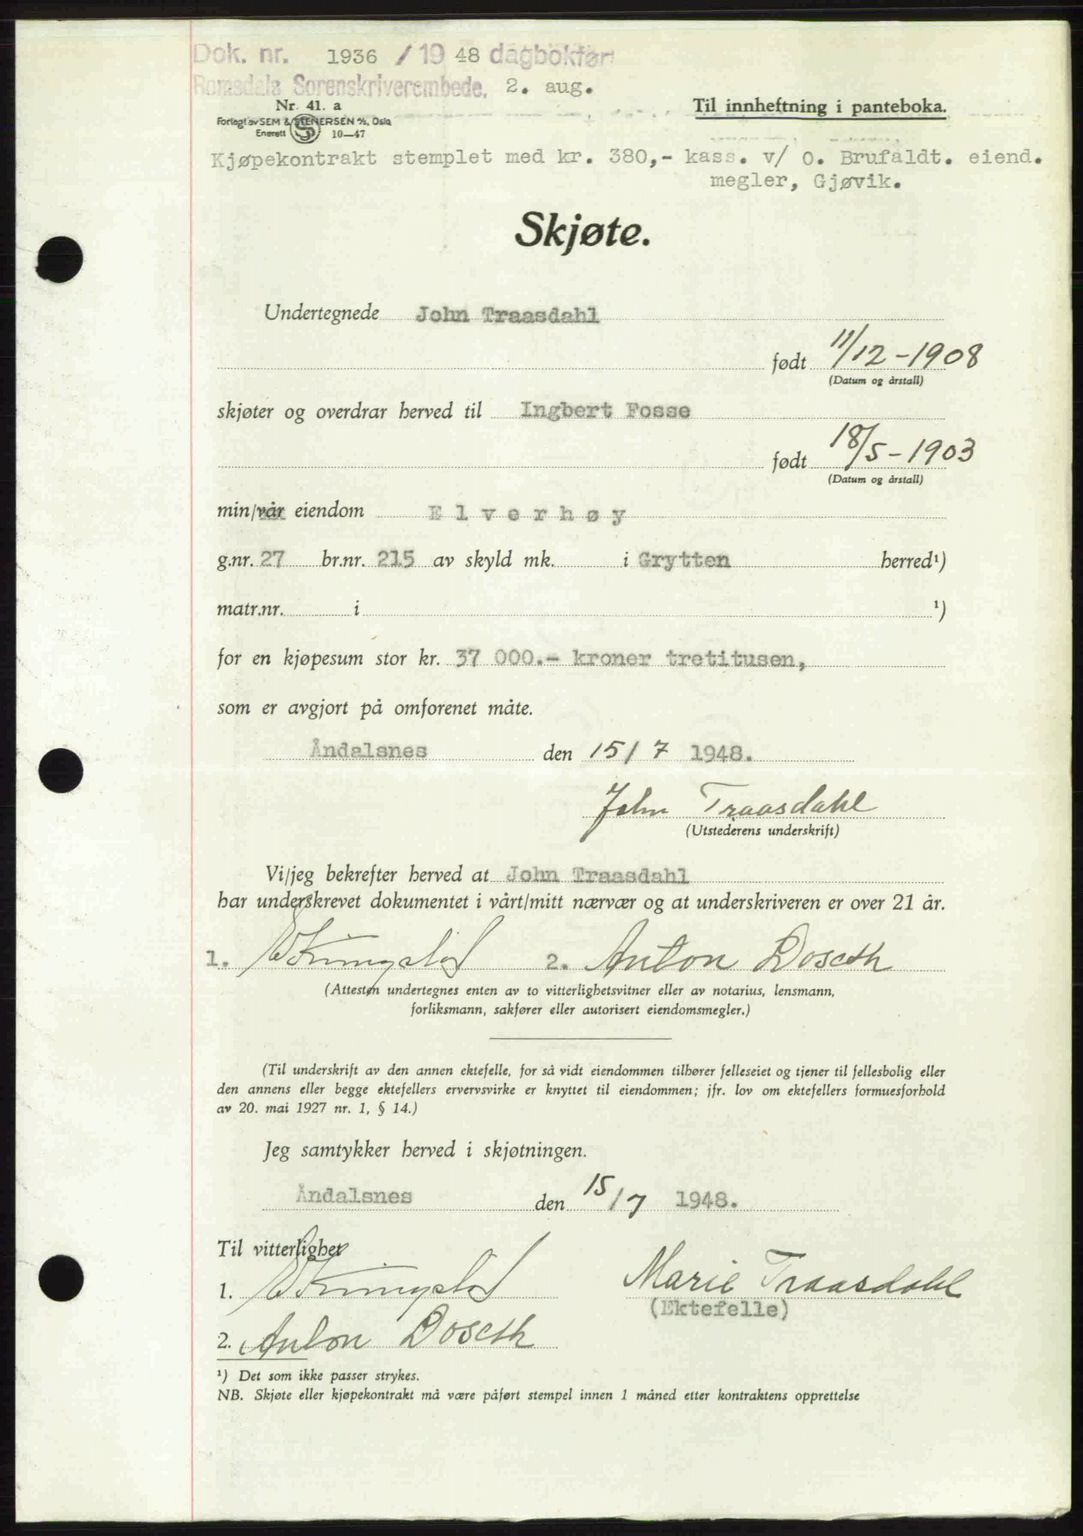 Dok. nr. 1936 / 19 48 dagbokført
Romsdals Sorenskriverembede. 2. aug.
Nr. 41. a
Til innheftning i panteboka.
Forlagt av SEM & STENERSEN A/S, Oslo
Enerett 10—47
Kjøpekontrakt stemplet med kr. 380,- kass. v/ O. Brufaldt. eiend.
megler, Gjøvik.
Skjøte.
Undertegnede John Traasdahl
født 11/12-1908
(Datum og årstall)
skjøter og overdrar herved til Ingbert Fosse
født 18/5-1903
(Datum og årstall)
min/vår eiendom Elverhøy
g.nr. 27 br.nr. 215 av skyld mk. i Grytten herred¹)
matr.nr. i ¹)
for en kjøpesum stor kr. 37 000.- kroner tretitusen,
som er avgjort på omforenet måte.
Åndalsnes den 15/7 1948.
John Traasdahl
(Utstederens underskrift)
Vi/jeg bekrefter herved at John Traasdahl
har underskrevet dokumentet i vårt/mitt nærvær og at underskriveren er over 21 år.
1. 2. Anton Doseth
(Attesten undertegnes enten av to vitterlighetsvitner eller av notarius, lensmann,
forliksmann, sakfører eller autorisert eiendomsmegler.)
(Til underskrift av den annen ektefelle, for så vidt eiendommen tilhører felleseiet og tjener til fellesbolig eller
den annens eller begge ektefellers ervervsvirke er knyttet til eiendommen; jfr. lov om ektefellers formuesforhold
av 20. mai 1927 nr. 1, § 14.)
Jeg samtykker herved i skjøtningen.
Åndalsnes den 15/7 1948.
Til vitterlighet
1. Marie Traasdahl
(Ektefelle)
2. Anton Doseth
¹) Det som ikke passer strykes.
NB. Skjøte eller kjøpekontrakt må være påført stempel innen 1 måned etter kontraktens opprettelse